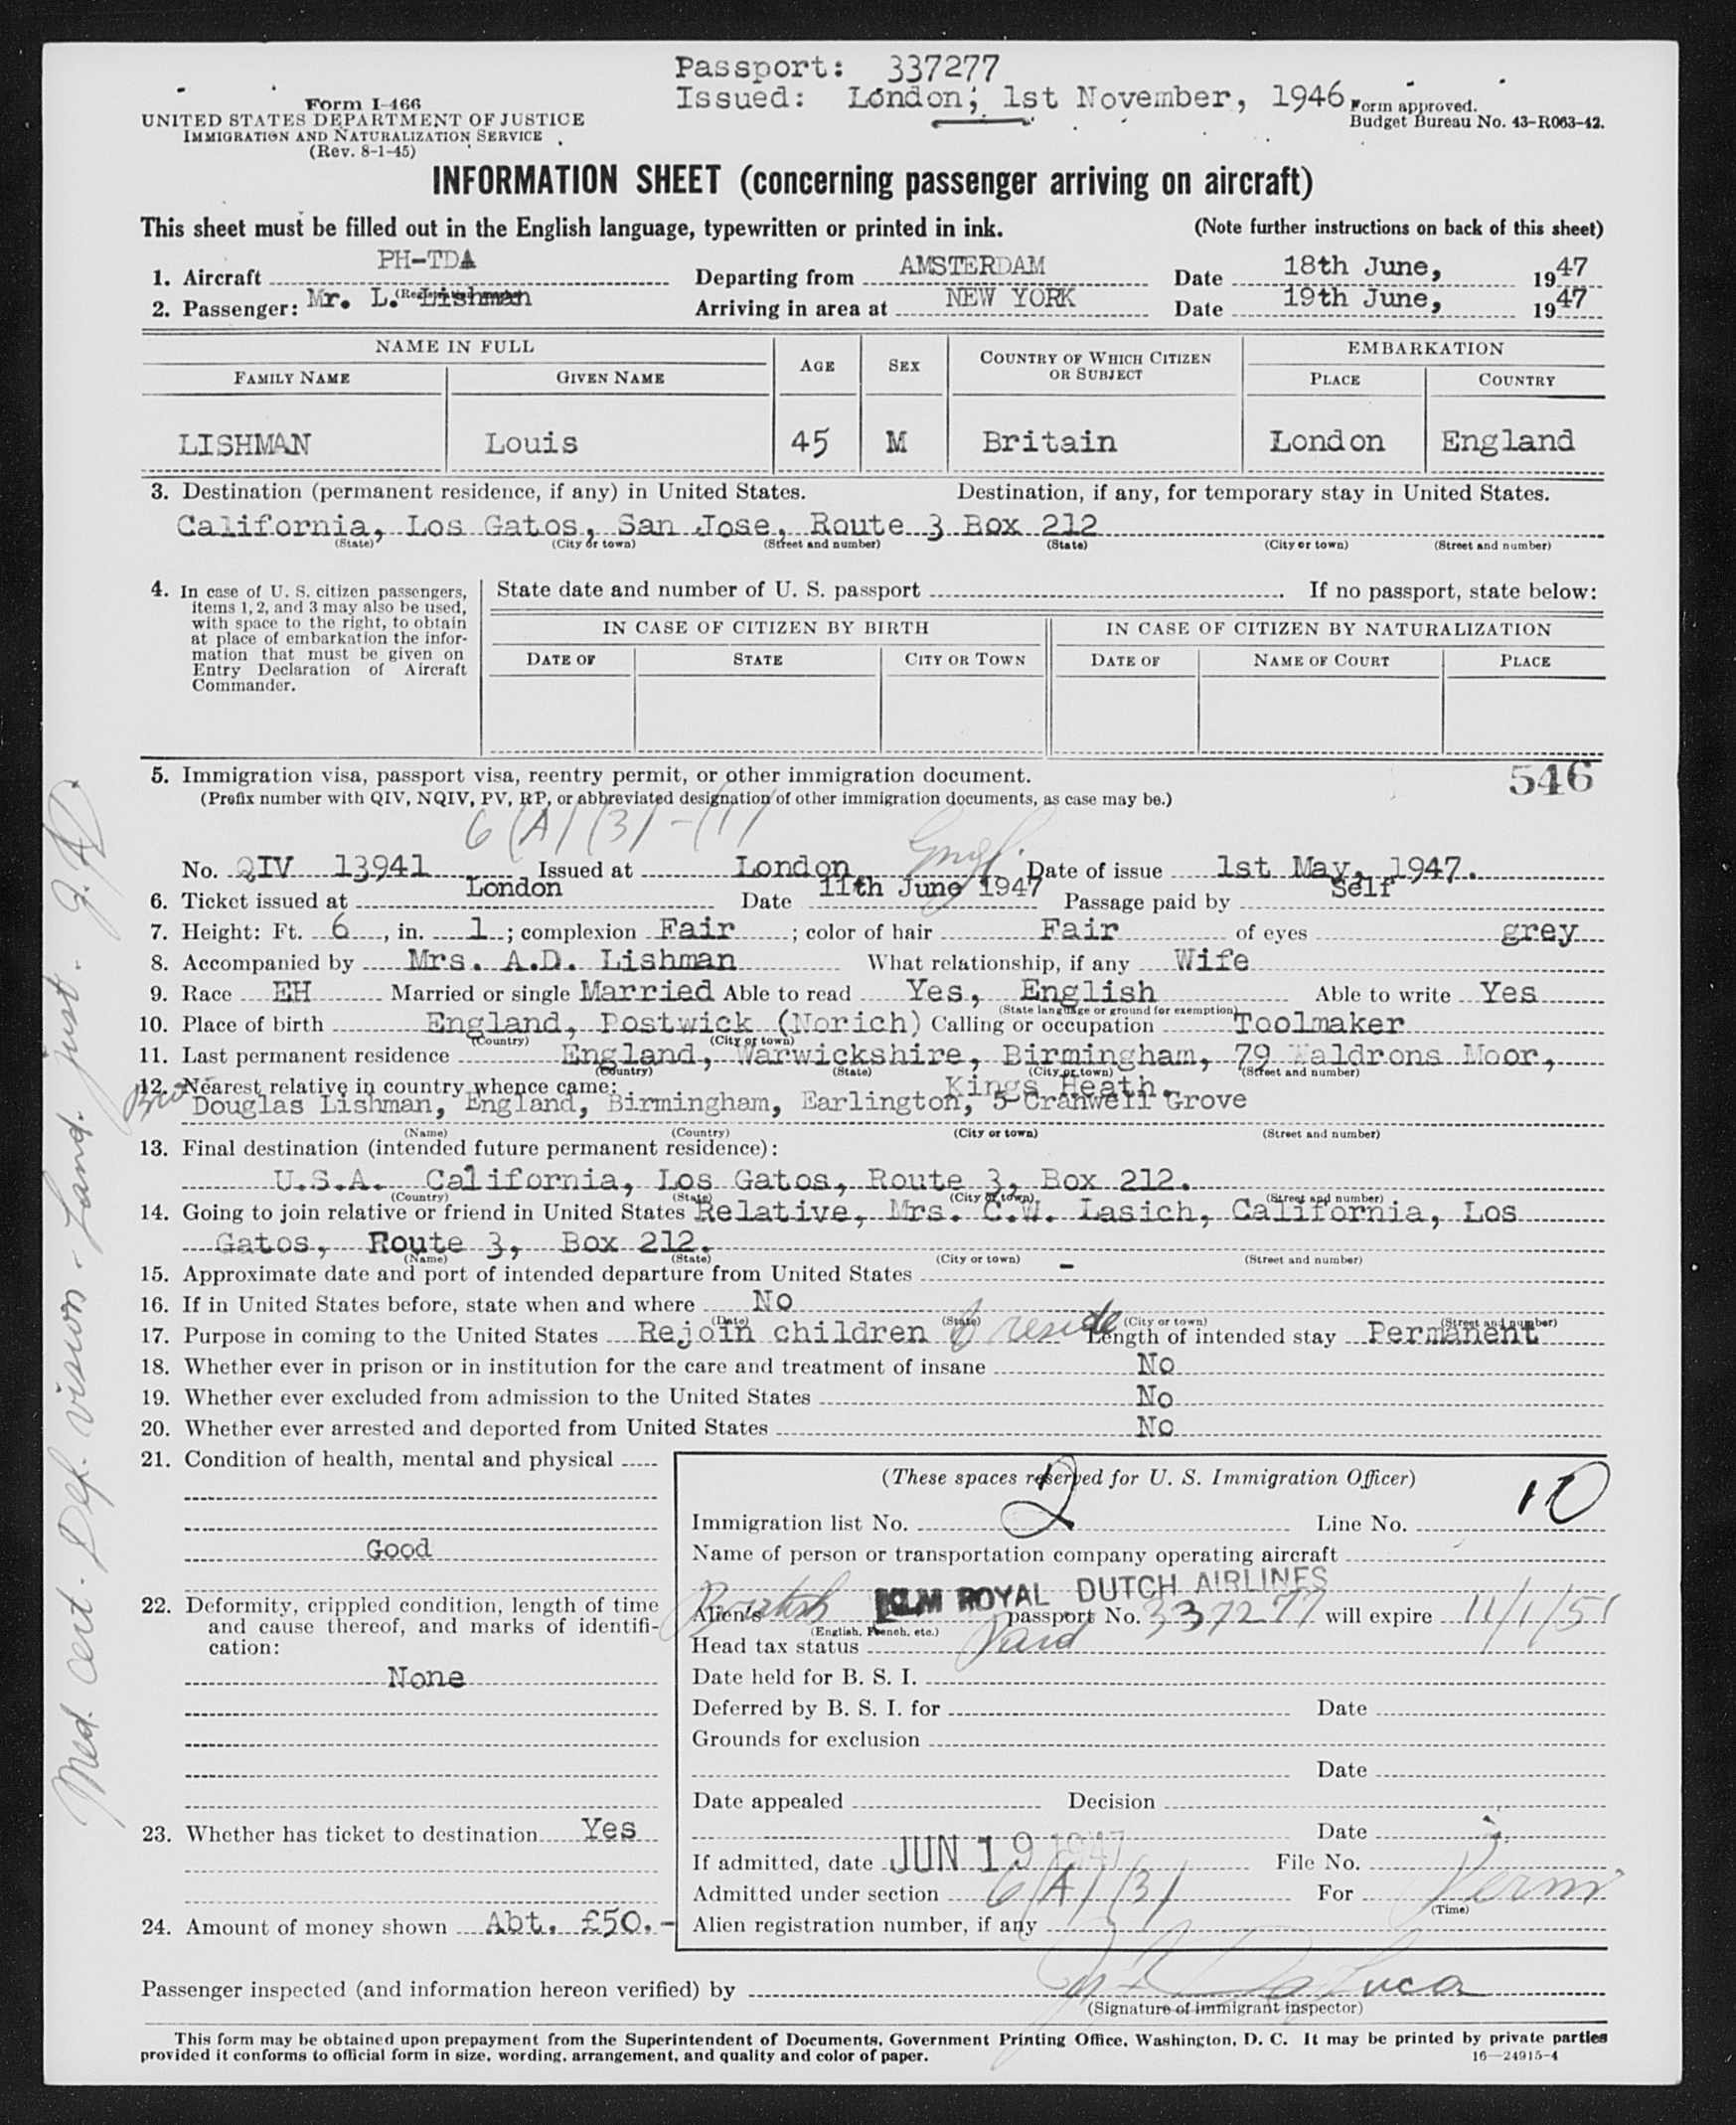 Passport: 337277
Issued: London; 1st November, 1946
Form I-466
UNITED STATES DEPARTMENT OF JUSTICE
IMMIGRATION AND NATURALIZATION SERVICE
(Rev. 8-1-45)
Form approved.
Budget Bureau No. 43-R063-42.
INFORMATION SHEET (concerning passenger arriving on aircraft)
This sheet must be filled out in the English language, typewritten or printed in ink. (Note further instructions on back of this sheet)
1. Aircraft PH-TDA Departing from AMSTERDAM Date 18th June, 1947
2. Passenger: Mr. L. Lishman Arriving in area at NEW YORK Date 19th June, 1947
NAME IN FULL AGE SEX COUNTRY OF WHICH CITIZEN OR SUBJECT EMBARKATION
FAMILY NAME GIVEN NAME PLACE COUNTRY
LISHMAN Louis 45 M Britain London England
3. Destination (permanent residence, if any) in United States. Destination, if any, for temporary stay in United States.
California, Los Gatos, San Jose, Route 3 Box 212
(State) (City or town) (Street and number) (State) (City or town) (Street and number)
4. In case of U. S. citizen passengers, items 1, 2, and 3 may also be used, with space to the right, to obtain at place of embarkation the information that must be given on Entry Declaration of Aircraft Commander.
State date and number of U. S. passport If no passport, state below:
IN CASE OF CITIZEN BY BIRTH IN CASE OF CITIZEN BY NATURALIZATION
DATE OF STATE CITY OR TOWN DATE OF NAME OF COURT PLACE
5. Immigration visa, passport visa, reentry permit, or other immigration document. 546
(Prefix number with QIV, NQIV, PV, RP, or abbreviated designation of other immigration documents, as case may be.)
6(A)(3)-(1)
No. QIV 13941 Issued at London Engl. Date of issue 1st May, 1947.
6. Ticket issued at London Date 11th June 1947 Passage paid by Self
7. Height: Ft. 6, in. 1; complexion Fair; color of hair Fair of eyes grey
8. Accompanied by Mrs. A.D. Lishman What relationship, if any Wife
9. Race EH Married or single Married Able to read Yes, English Able to write Yes
(State language or ground for exemption)
10. Place of birth England, Postwick (Norich) Calling or occupation Toolmaker
(Country) (City or town)
11. Last permanent residence England, Warwickshire, Birmingham, 79 Waldrons Moor,
(Country) (State) (City or town) (Street and number)
Kings Heath.
12. Nearest relative in country whence came:
Bro Douglas Lishman, England, Birmingham, Earlington, 5 Cranwell Grove
(Name) (Country) (City or town) (Street and number)
13. Final destination (intended future permanent residence):
U.S.A. California, Los Gatos, Route 3, Box 212.
(Country) (State) (City or town) (Street and number)
14. Going to join relative or friend in United States Relative, Mrs. C.W. Lasich, California, Los
Gatos, Route 3, Box 212.
(Name) (State) (City or town) (Street and number)
15. Approximate date and port of intended departure from United States -
16. If in United States before, state when and where No
(Date) (State) (City or town) (Street and number)
17. Purpose in coming to the United States Rejoin children & reside Length of intended stay Permanent
18. Whether ever in prison or in institution for the care and treatment of insane No
19. Whether ever excluded from admission to the United States No
20. Whether ever arrested and deported from United States No
21. Condition of health, mental and physical
Good
22. Deformity, crippled condition, length of time and cause thereof, and marks of identification:
None
23. Whether has ticket to destination Yes
24. Amount of money shown Abt. £50.-
(These spaces reserved for U. S. Immigration Officer)
Immigration list No. 2 Line No. 10
Name of person or transportation company operating aircraft
KLM ROYAL DUTCH AIRLINES
Alien's British passport No. 337277 will expire 11/1/51
(English, French, etc.)
Head tax status Paid
Date held for B. S. I.
Deferred by B. S. I. for Date
Grounds for exclusion
Date
Date appealed Decision
Date
If admitted, date JUN 19 1947 File No.
Admitted under section 6(A)(3) For Perm
(Time)
Alien registration number, if any
Passenger inspected (and information hereon verified) by
(Signature of immigrant inspector)
This form may be obtained upon prepayment from the Superintendent of Documents, Government Printing Office, Washington, D. C. It may be printed by private parties
provided it conforms to official form in size, wording, arrangement, and quality and color of paper. 16—24915-4
Med. cert. Def. vision